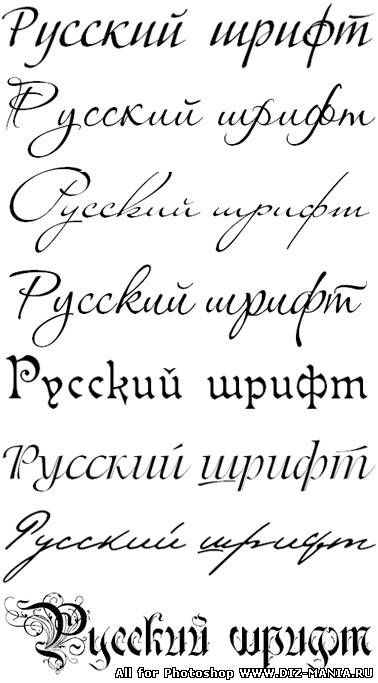 Русский шрифт
Русский шрифт
Русский шрифт
Русский шрифт
Русский шрифт
Русский шрифт
Русский шрифт
Русский шрифт
All for Photoshop WWW.DIZ-MANIA.RU